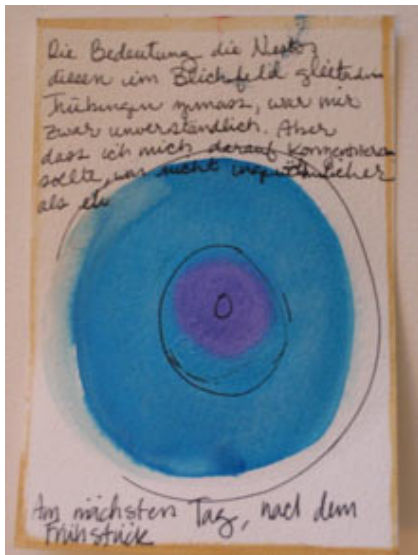 Die Bedeutung die Nestor
diesen im Blickfeld gleitenden
Trübungen zumass, war mir
zwar unverständlich. Aber
dass ich mich darauf konzentrieren
sollte, war nicht ungewöhnlicher
als ein
Am nächsten Tag, nach dem
Frühstück